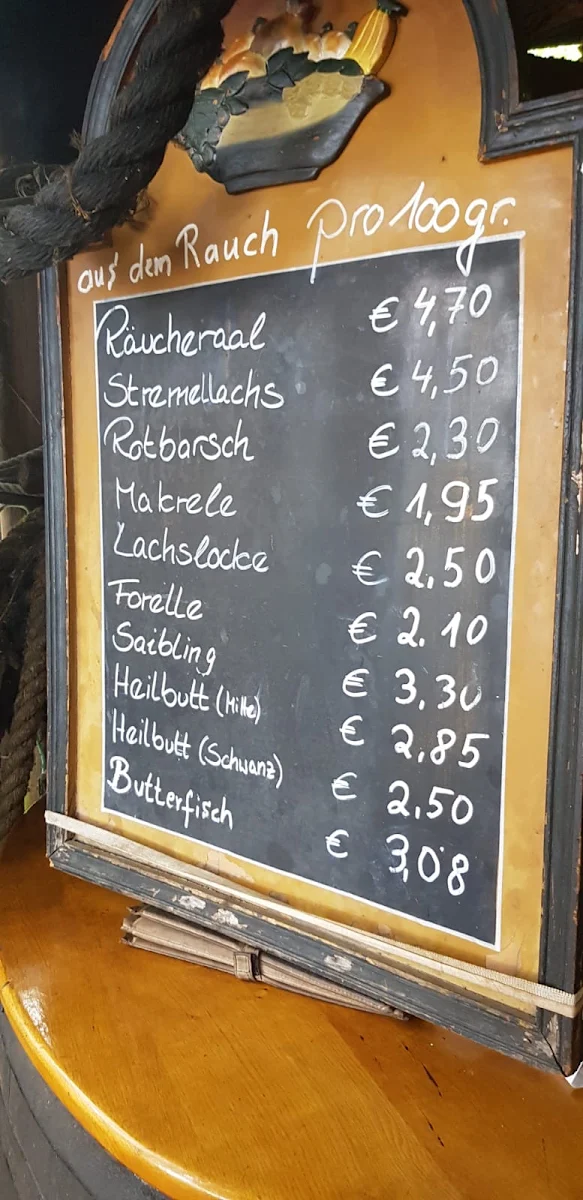 aus dem Rauch pro 100gr.
Räucheraal € 4,70
Stremellachs € 4,50
Rotbarsch € 2,30
Makrele € 1,95
Lachslocke € 2.50
Forelle € 2.10
Saibling € 3.30
Heilbutt (Mitte) € 2,85
Heilbutt (Schwanz) € 2.50
Butterfisch € 3,08